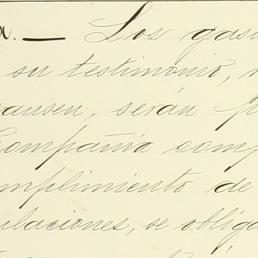 a. — Los gas
su testimonio,
causen, serán p
Compañía comp
mplimiento de
ulaciones, se obliga